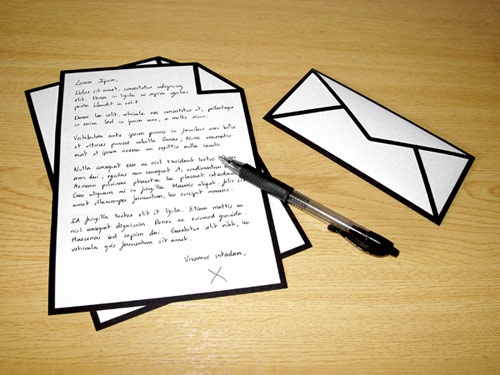 Lorem Ipsum,
Dolor sit amet, consectetur adipiscing
elit. Etiam in ligula ac sapien egestas
porta blandit in velit.
Etiam leo velit, vehicula nec consectetur et, pellentesque
in enim. Sed in ipsum sem, a mattis
Vestibulum ante ipsum primis in faucibus orci luctus
et ultrices posuere cubilia Curae; Nunc venenatis
erat et ipsum
Nulla consequat sem ac nisl tincidunt luctus
orci dui, egestas non consequat et, condimentum
Aenean pulvinar pharetra leo placerat interdum.
Cras aliquam mi in fringilla. Mauris aliquet, felis sit
amet ullamcorper fermentum, leo suscipit mauris.
Id fringilla tortor elit et ligula. Etiam mattis ex
nisl consequat dignissim. Donec ac euismod gravida.
Maecenas sed sapien dui. Curabitur velit nibh, leo
vehicula quis fermentum sit amet.
Vivamus interdum,
X